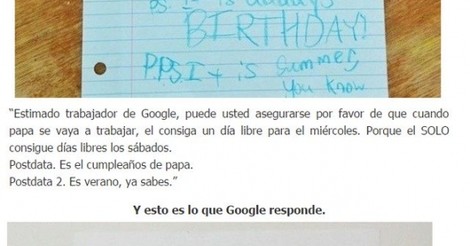 PS. It is daddy's
BIRTHDAY!
P.P.S. It is summer,
You know
“Estimado trabajador de Google, puede usted asegurarse por favor de que cuando
papa se vaya a trabajar, el consiga un día libre para el miércoles. Porque el SOLO
consigue días libres los sábados.
Postdata. Es el cumpleaños de papa.
Postdata 2. Es verano, ya sabes.”
Y esto es lo que Google responde.